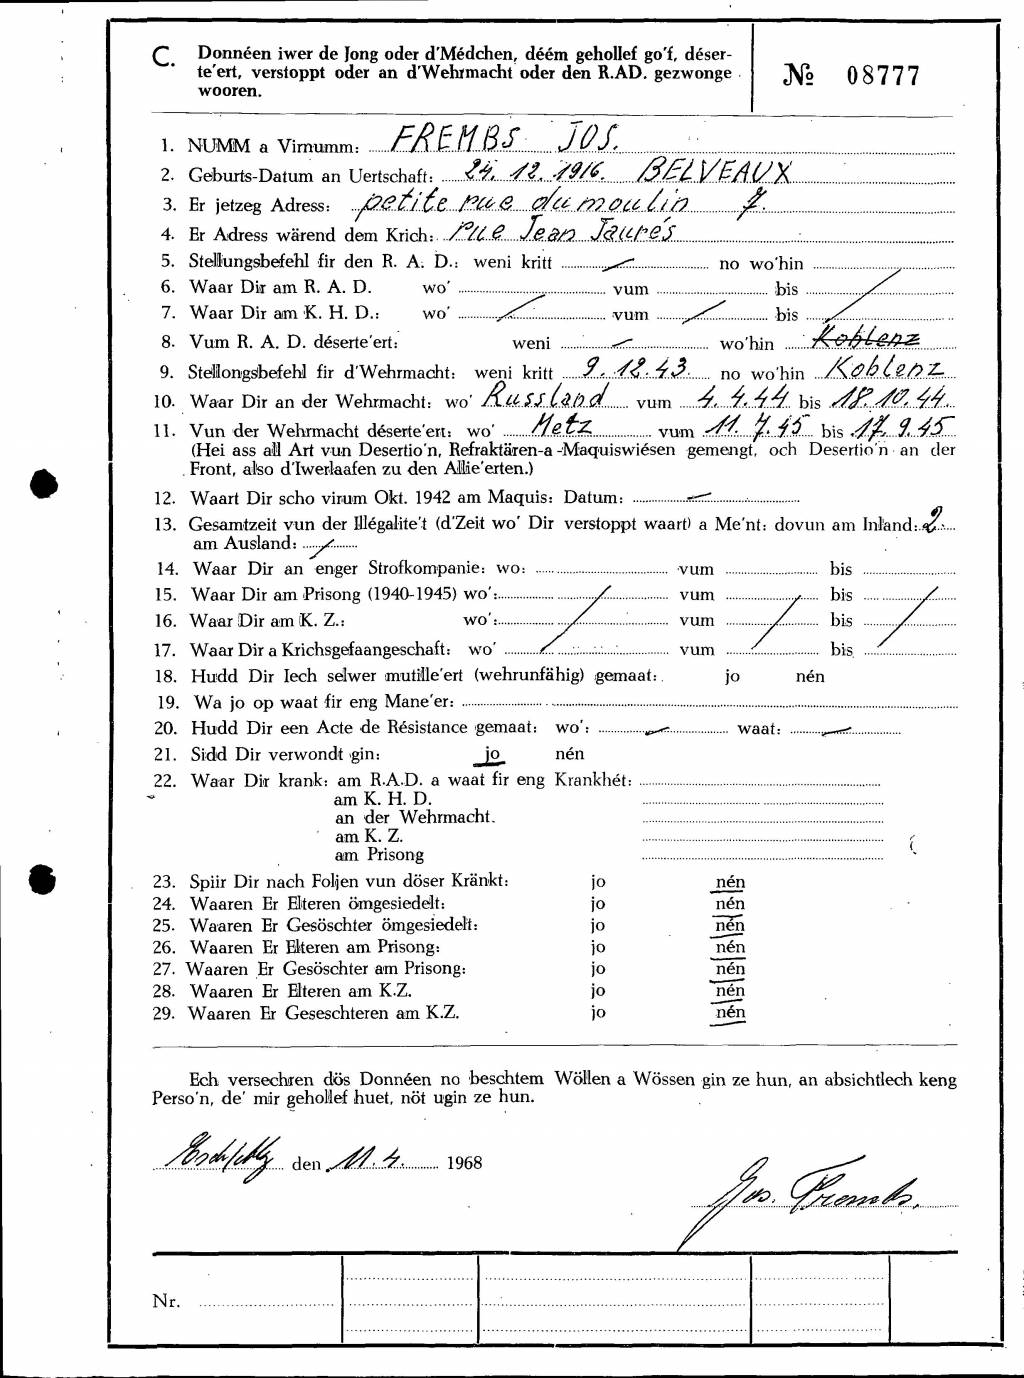 C. Donnéen iwer de Jong oder d'Médchen, déém gehollef go'f, déser-
te'ert, verstoppt oder an d'Wehrmacht oder den R.AD. gezwonge
wooren.
№ 08777
1. NUMM a Virnumm: FREMBS JOS.
2. Geburts-Datum an Uertschaft: 24. 12. 1916. BELVEAUX
3. Er jetzeg Adress: petite rue du moulin 7.
4. Er Adress wärend dem Krich: rue Jean Jaurés
5. Stellungsbefehl fir den R. A. D.: weni kritt no wo'hin
6. Waar Dir am R. A. D. wo' vum bis
7. Waar Dir am K. H. D.: wo' vum bis
8. Vum R. A. D. déserte'ert: weni wo'hin Koblenz
9. Stellongsbefehl fir d'Wehrmacht: weni kritt 9. 12. 43. no wo'hin Koblenz
10. Waar Dir an der Wehrmacht: wo' Russland vum 4. 4. 44. bis 18. 10. 44.
11. Vun der Wehrmacht déserte'ert: wo' Metz vum 11. 7. 45 bis 17. 9. 45
(Hei ass all Art vun Desertio'n, Refraktären-a-Maquiswiésen gemengt, och Desertio'n an der
Front, also d'Iwerlaafen zu den Allie'erten.)
12. Waart Dir scho virum Okt. 1942 am Maquis: Datum:
13. Gesamtzeit vun der Illégalite't (d'Zeit wo' Dir verstoppt waart) a Me'nt: dovun am Inland: 2
am Ausland:
14. Waar Dir an enger Strofkompanie: wo: vum bis
15. Waar Dir am Prisong (1940-1945) wo': vum bis
16. Waar Dir am K. Z.: wo': vum bis
17. Waar Dir a Krichsgefaangeschaft: wo' vum bis
18. Hudd Dir Iech selwer mutille'ert (wehrunfähig) gemaat: jo nén
19. Wa jo op waat fir eng Mane'er:
20. Hudd Dir een Acte de Résistance gemaat: wo': waat:
21. Sidd Dir verwondt gin: jo nén
22. Waar Dir krank: am R.A.D. a waat fir eng Krankhét:
am K. H. D.
an der Wehrmacht.
am K. Z.
am Prisong
23. Spiir Dir nach Foljen vun döser Kränkt: jo nén
24. Waaren Er Elteren ömgesiedelt: jo nén
25. Waaren Er Gesöschter ömgesiedelt: jo nén
26. Waaren Er Elteren am Prisong: jo nén
27. Waaren Er Gesöschter am Prisong: jo nén
28. Waaren Er Elteren am K.Z. jo nén
29. Waaren Er Geseschteren am K.Z. jo nén
Ech versechren dös Donnéen no beschtem Wöllen a Wössen gin ze hun, an absichtlech keng
Perso'n, de' mir gehollef huet, nöt ugin ze hun.
Esch/Alz den 11. 4. 1968
Jos. Frembs.
Nr.